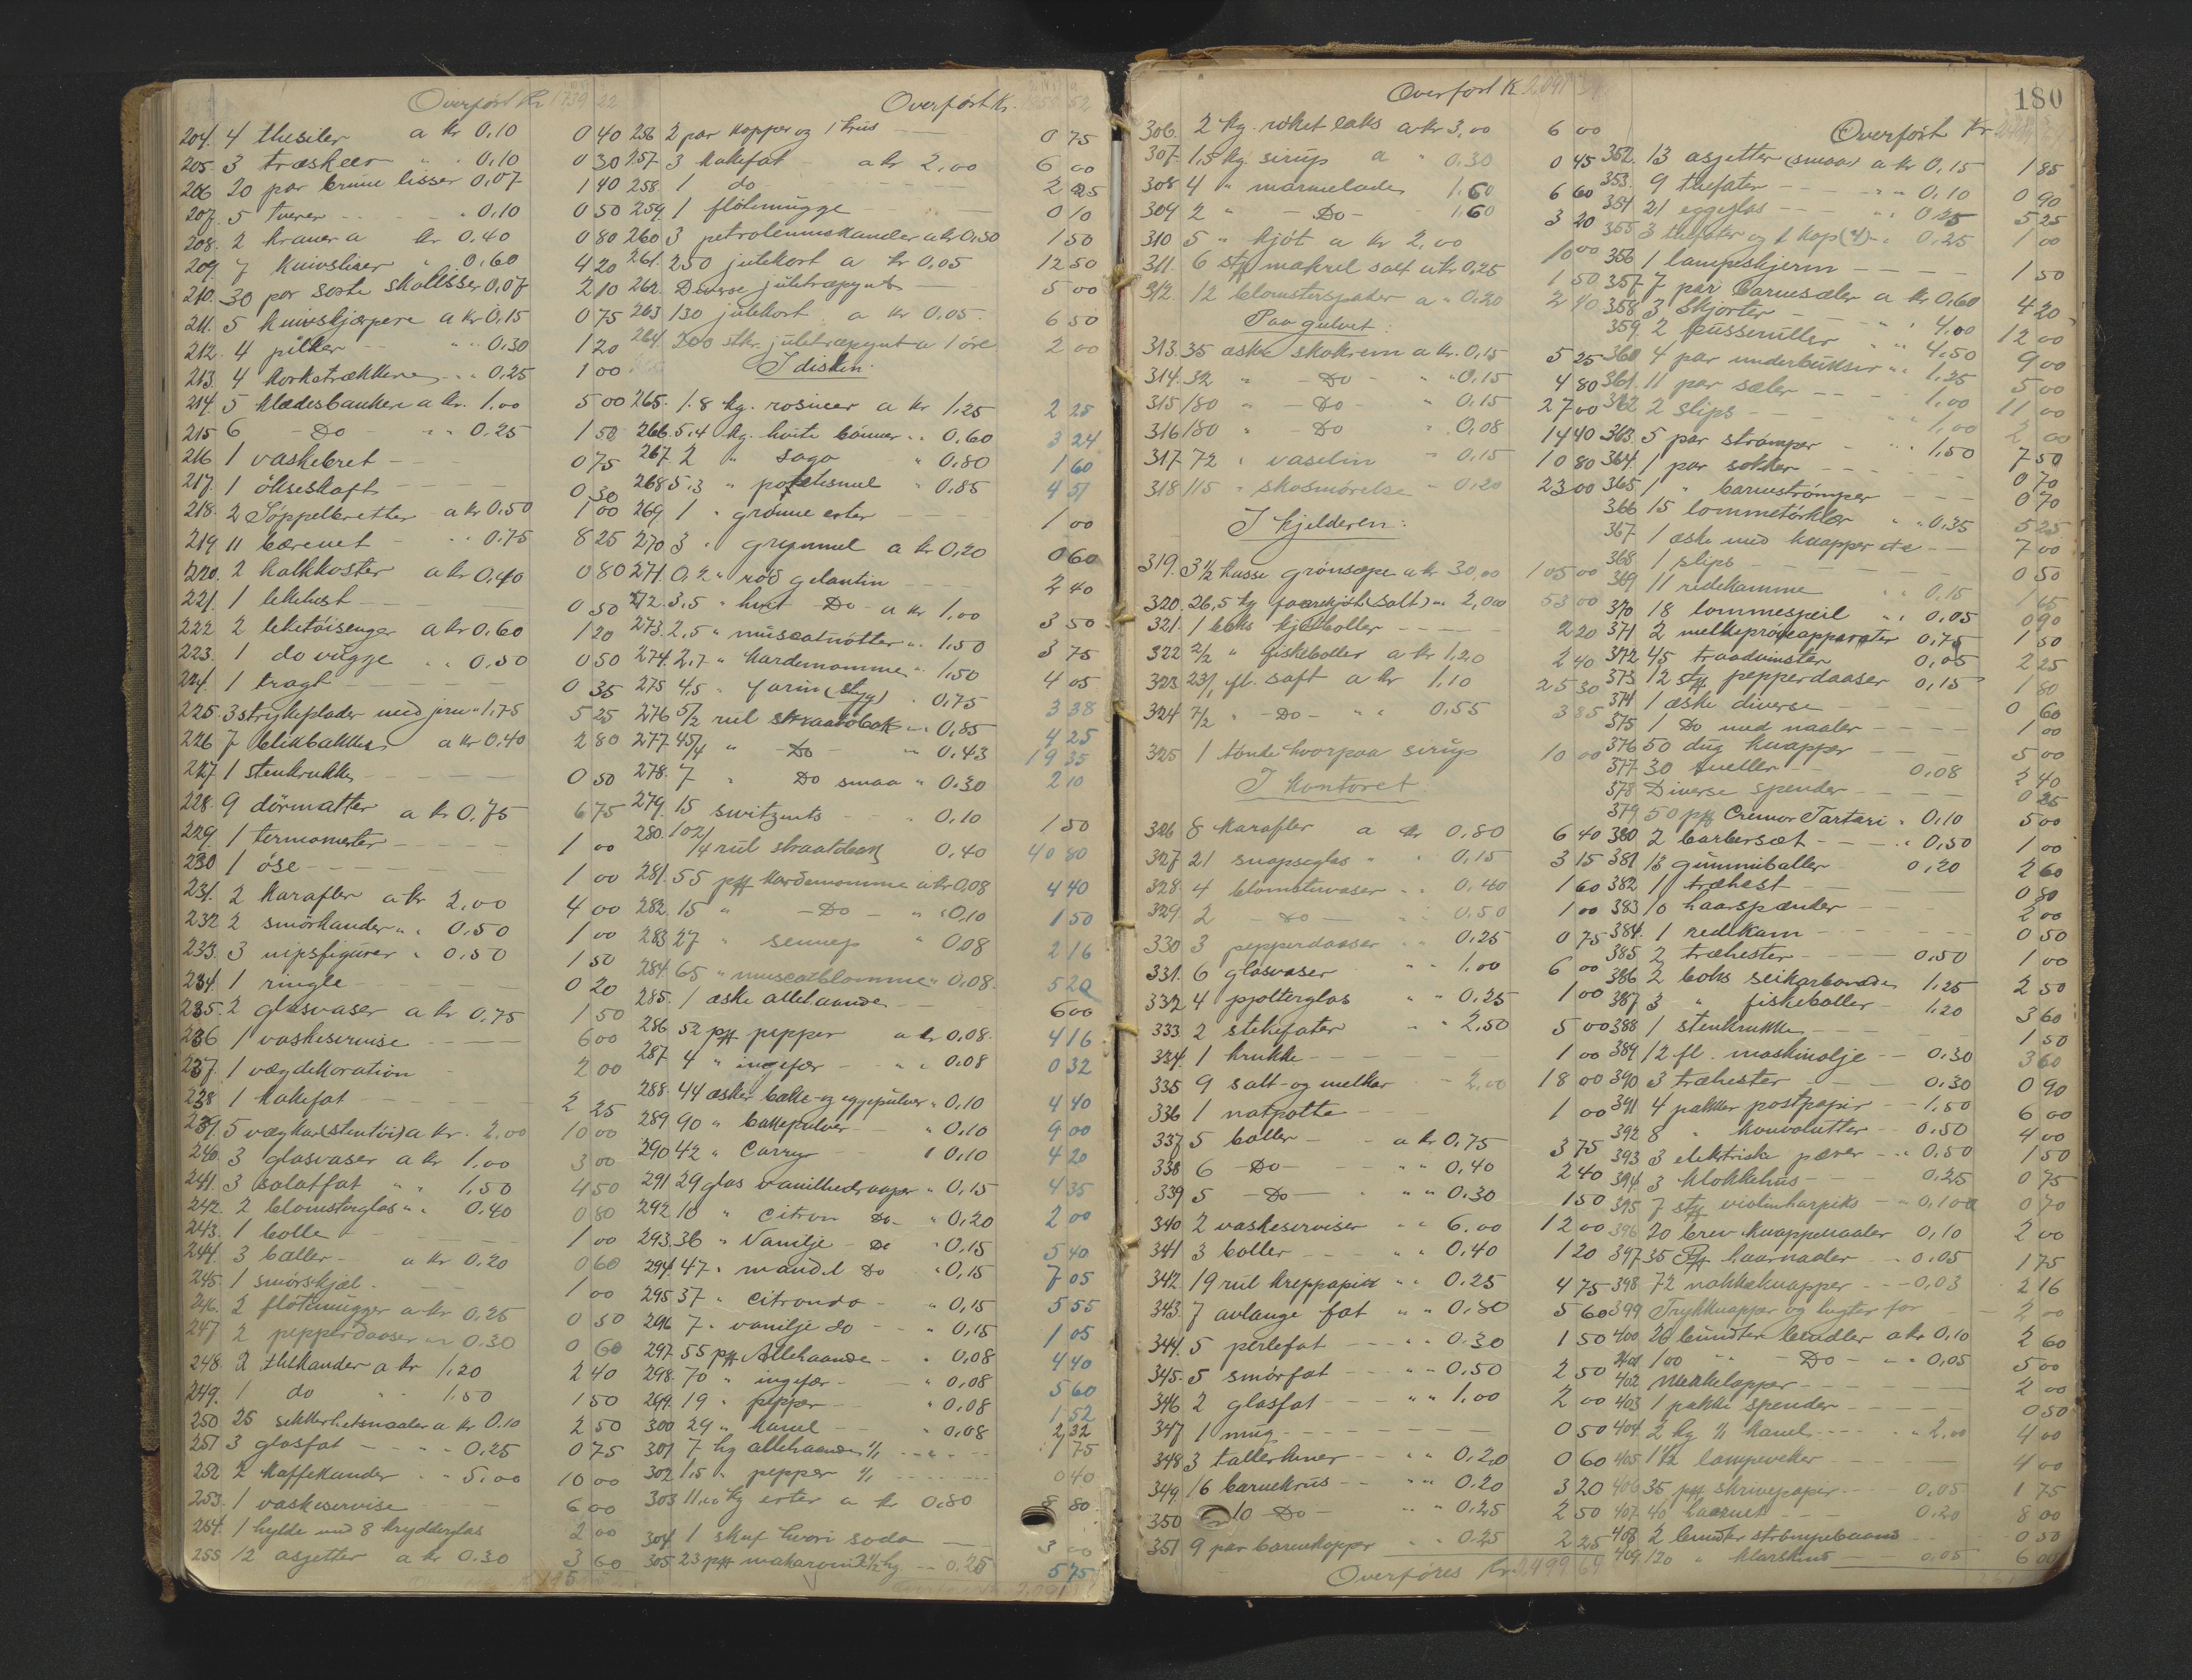 Overført Kr 1739 22
204. 4 thesiler a kr 0,10 0 40
205. 3 træskeer " " 0,10 0 30
206 20 par brune lisser 0,07 1 40
207. 5 tverer - - - " 0,10 0 50
208. 2 kraner a kr 0,40 0 80
209. 7 knivsliser " 0,60 4 20
210. 30 par sorte skolisser 0,07 2 10
211. 5 knivskjærpere a kr 0,15 0 75
212. 4 pilker - " " 0,30 1 20
213. 4 korketrækkere - " 0,25 1 00
214. 5 klædesbankere a kr. 1,00 5 00
215 6 - Do - " " 0,25 1 50
216 1 vaskebret - - 0 75
217. 1 økseskaft - - - - 0 30
218. 2 Søppelbretter - a kr 0,50 1 00
219 11 bærenet - " " 0,75 8 25
220. 2 kalkkoster a kr 0,40 0 80
221. 1 lekehest - - - 0 50
222 2 leketøisenger a kr 0,60 1 20
223. 1 do vugge " " 0,50 0 50
224. 1 tragt - - - - 0 35
225. 3 strykeplader med jern " 1,75 5 25
226 7 blikbakker a kr 0,40 2 80
227. 1 stenkrukke - - - - 0 50
228. 9 dørmatter a kr 0,75 6 75
229. 1 termometer - - - - 1 00
230 1 øse - - - - 1 00
231. 2 karafler a kr 2,00 4 00
232 2 smørkander " " 0,50 1 00
233. 3 nipsfigurer " 0,50 1 50
234. 1 ringle - - - - 0 20
235. 2 glasvaser a kr 0,75 1 50
236 1 vaskeservise - - - 6 00
237. 1 vægdekoration - 2 00
238 1 kakefat - - - - 2 25
239. 5 vægkar (stentøi) a kr. 2,00 10 00
240. 3 glasvaser a kr 1,00 3 00
241. 3 salatfat " " 1,50 4 50
242. 2 blomsterglas " " 0,40 0 80
243. 1 bolle - - - - 1 00
244. 3 boller - a kr 0,20 0 60
245. 1 smørskjæl - - 1 00
246. 2 fløtemugger a kr 0,25 0 50
247 2 pepperdaaser " " 0,30 0 60
248. 2 thekander a kr 1,20 2 40
249. 1 do " " 1,50 1 50
250 25 sikkerhetsnaaler a kr 0,10 2 50
251 3 glasfat - - - - 0,25 0 75
252 2 kaffekander " " 5,00 10 00
253. 1 vaskeservise - - 6 00
254. 1 hylde med 8 krydderglas 2 00
255. 12 asjetter a kr 0.30 3 60
Overført Kr. 52
256 2 par kopper og 1 krus - - 0 75
257. 3 kakefat - a kr 2,00 6 00
258. 1 do - - - - 2 25
259. 1 fløtemugge - - 0 10
260 3 petroleumskander a kr 0,50 1 50
261. 250 julekort a kr 0,05 12 50
262. Diverse juletræpynt - 5 00
263 130 julekort a kr 0,05 6 50
264 200 stkr. juletræpynt a 1 øre 2 00
I disken:
265. 1.8 kg. rosiner a kr 1,25 2 25
266. 5,4 kg. hvite bønner " " 0,60 3 24
267. 2 " sago " 0,80 1 60
268 5,3 " potetesmel " 0,85 4 51
269 1 " grønne erter - - 1 00
270 3 " grynmel a kr 0,20 0 60
271. 0,2 " rød gelantin - - 2 40
272. 3,5 " hvit Do - a kr 1,00 3 50
273. 2,5 " muscatnøtter " 1,50 3 75
274. 2,7 " kardemomme " 1,50 4 05
275 4,5 " farin (styg) " 0,75 3 38
276 5/2 rul skraatobak " " 0,85 4 25
277. 45/4 " Do " " 0,43 19 35
278. 7 " Do smaa " 0,30 2 10
279. 15 switzents - " 0,10 1 50
280. 102/4 rul skraatobak 0,40 40 80
281. 55 pk kardemomme a kr 0,08 4 40
282. 15 " - Do - " " 0,10 1 50
283 27 " sennep " 0,08 2 16
284. 65 " muscatblomme " 0,08 5 20
285. 1 æske allehaande - - 6 00
286 52 pk pepper a kr 0,08 4 16
287. 4 " ingefær - " " 0,08 0 32
288. 44 æsker bakke- og eggepulver " 0,10 4 40
289 90 " bakepulver - " 0,10 9 00
290 42 " Carry - - " 0,10 4 20
291 29 glas vanilledraaper " 0,15 4 35
292 10 " citron Do - " 0,20 2 00
293. 36 " Vanilje - Do " 0,15 5 40
294. 47 " mandel Do " 0,15 7 05
295 37 " citrondo - " 0,15 5 55
296 7 " vanilje do - " 0,15 1 05
297. 55 pk Allehaande - " 0,08 4 40
298. 70 " ingefær - - " 0,08 5 60
299. 19 " pepper - - " 0,08 1 52
300 29 " kanel - - " 0,08 2,32
301 7 hg allehaande 1/1 - - " - 1 75
302 1,5 " pepper 1/1 - - - 0 40
303 11,00 kg erter a kr 0,80 8 80
304 1 skuf hvori soda - 3 00
305 23 pk makaroni 2 1/2 kg - - 0,25 5 75
180
Overført K 2,091
306. 2 kg. røket laks a kr 3,00 6 00
307. 1,5 kg. sirup a " 0,30 0 45
308 4 " marmelade 1,60 6 60
309 2 " - Do - 1,60 3 20
310 5 " kjøt a kr 2,00 10 00
311. 6 stk makrel salt a kr 0,25 1 50
312. 12 blomsterspader a " 0,20 2 40
Paa gulvet:
313. 35 æske skokrem a kr. 0,15 5 25
314. 32 " - Do - " " 0,15 4 80
315 180 " - Do " 0,15 27 00
316 180 " - Do " 0,08 14 40
317 72 " vaselin " 0,15 10 80
318 115 " skosmørelse " 0,20 23 00
I kjelderen:
319. 3 1/2 kasse grønsæpe a kr 30,00 105 00
320. 26,5 kg faarekjøt (salt) " " 2,00 53 00
321. 1 boks kjøtboller - - - 2 20
322 2/2 " fiskeboller a kr 1,20 2 40
323 23/1 fl. saft a kr 1,10 25 30
324 7/2 " - Do - " " 0,55 3 85
325 1 tønde hvorpaa sirup 10 00
I kontoret
326 8 karafler a kr 0,80 6 40
327 21 snapseglas " " 0,15 3 15
328 4 blomstervaser " " 0,40 1 60
329. 2 - Do - " " 0,50 1 00
330 3 pepperdaaser " " 0,25 0 75
331. 6 glasvaser " " 1,00 6 00
332 4 pjolterglas " " 0,25 1 00
333 2 stekefater " " 2,50 5 00
334. 1 krukke - - - - 1 00
335 9 salt- og melkar - " 2,00 18 00
336 1 natpotte - - - 1 00
337 5 boller - - a kr 0,75 3 75
338 6 - Do - - " " 0,40 2 40
339 5 - Do - " " " 0,30 1 50
340 2 vaskeserviser " " 6,00 12 00
341 3 boller - - - " " 0,40 1 20
342. 19 rul kreppapir " " 0,25 4 75
343. 7 avlange fat " " 0,80 5 60
344. 5 perlefat - - " " 0.30 1 50
345. 5 smørfat - - " " 0,50 2 50
346 2 glasfat - - " " 1,00 2 00
347 1 mug - - - - - 0 50
348 3 tallerkner - - " " 0,20 0 60
349. 16 barnekrus - - " " 0,20 3 20
350 10 - Do - " " 0,25 2 50
351 9 par barnekopper " 0,25 2 25
Overføres kr. 2,499 64
Overført Kr
352. 13 asjetter (smaa) a kr 0,15 1 85
353. 9 thefater - - - " " 0,10 0 90
354 21 eggeglas - - - " " 0,25 5 25
355 3 thefater og 1 kop (4) - " 0,25 1 00
356 1 lampeskjerm - - - - 1 50
357 7 par barnesæler a kr 0,60 4 20
358 3 skjorter - - " " 4,00 12 00
359 2 busseruller - " " 4,50 9 00
360 4 par underbukser " " 1,25 5 00
361. 11 par sæler - - - 1,00 11 00
362 2 slips - - - " " 1,00 2 00
363. 5 par strømper - - " 1,50 7 50
364. 1 par sokker - - - 0 70
365 1 " barnestrømper - - - 0 70
366 15 lommetørklær " " 0,35 5 25
367 1 æske med knapper etc - - 7 00
368 1 slips - - - - 0 50
369 11 redekamme " " 0,15 1 65
370 18 lommespeil " " 0,05 0 90
371 2 melkeprøveapparater 0,75 1 50
372 45 traadvinster 0,05 2 25
373 12 stk pepperdaaser 0,15 1 80
374 1 æske diverse - - - 0 60
375 1 Do med naaler - - - 1 00
376 50 dug knapper - - 5 00
377 30 sneller - - 0,08 2 40
378 Diverse spender - - - 0 25
379 50 pk Cremor Tartari " 0,10 5 00
380 2 barbersæt - - - " 0,50 1 00
381 13 gummiballer - 0,20 2 60
382 1 træhest - - - - 0 50
383 10 haarspænder - - - 2 00
384. 1 redekam - - - - 0 50
385 2 træhester - - - 0,50 1 00
386 2 boks seikarbonader 1,25 2 50
387 3 " fiskeboller - 1,20 3 60
388 1 stenkrukke - - - 1 50
389 12 fl. maskinolje - - 0,30 3 60
390 3 træhester - - - 0,30 0 90
391 4 pakker postpapir - - 1,50 6 00
392 8 " konvolutter - - 0,50 4 00
393 3 elektriske pærer - - " 0,50 1 50
394. 3 klokkehus - - - 0,25 0 75
395 7 stk violinharpiks - " 0,10 0 70
396 20 brev knappenaaler 0,10 2 00
397 35 Pk haarnaaler - - 0,05 1 75
398 72 nakkeknapper - - - 0,03 2 16
399 Trykknapper og hegter for - 2 00
400. 26 bundter bendler a kr 0,10 2 60
401 100 " " - Do - " " 0,05 5 00
402 Merkelapper - - - - 2 00
403 1 pakke spender - - - - 0 50
404. 2 kg 1/1 kanel - - - " " 2,00 4 00
405 1 lampeveker - - - 4 00
406 35 pk skrivepapir - - - 0,05 1 75
407. 40 haarnet - - - 0,20 8 00
408 2 bundter strømpebaand - - 0 50
409. 120 " klarskind - - 0,05 6 00